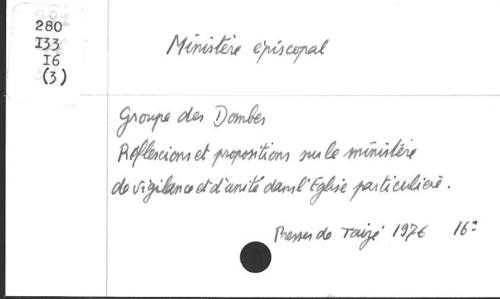 280
I33
I6
(3)
Ministère épiscopal
Groupe des Dombes
Réflexions et propositions sur le ministère
de vigilance et d'unité dans l'Eglise particulière.
Presses de Taizé 1976 16°